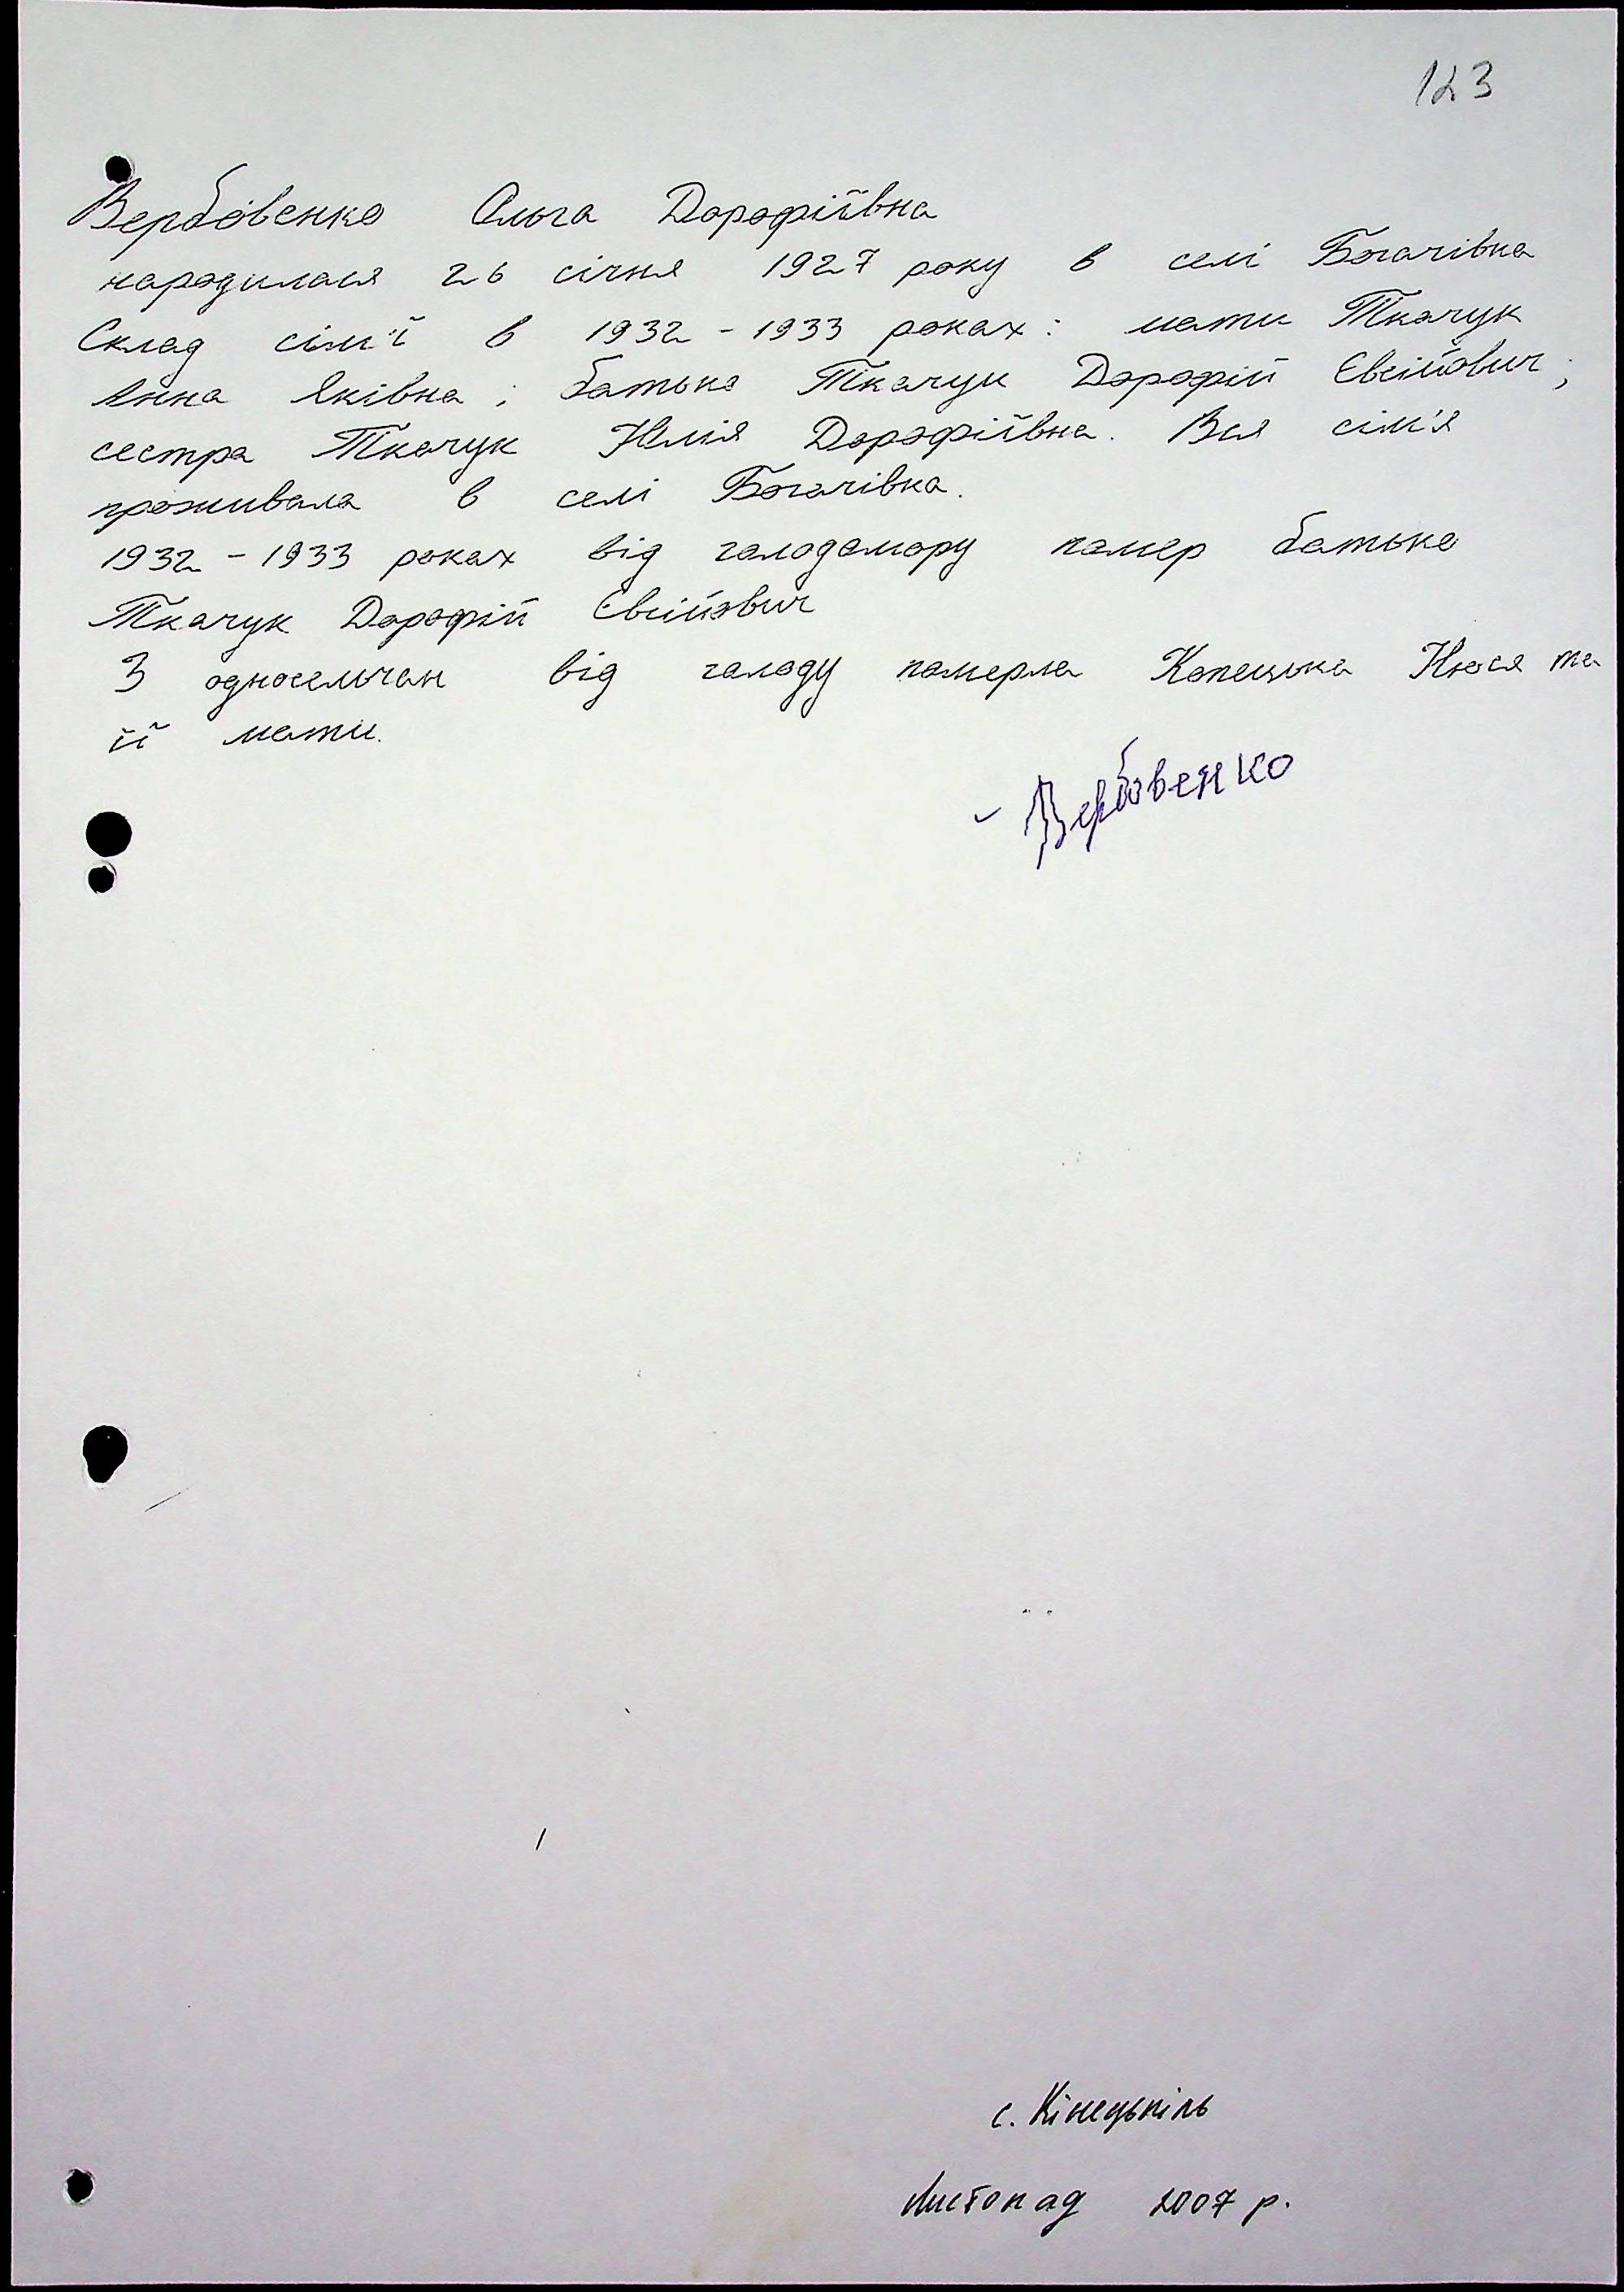 123
Вербовенко Ольга Дорофіївна
народилася 26 січня 1927 року в селі Богачівка
Склад сім'ї в 1932 - 1933 роках: мати Ткачук
Анна Яківна; батько Ткачук Дорофій Євсійович;
сестра Ткачук Юлія Дорофіївна. Вся сім'я
проживала в селі Богачівка.
1932 - 1933 роках від голодомору помер батько
Ткачук Дорофій Євсійович
З односельчан від голоду померла Копецька Нюся та
її мати.
Вербовенко
с. Кінецьпіль
Листопад 2007 р.